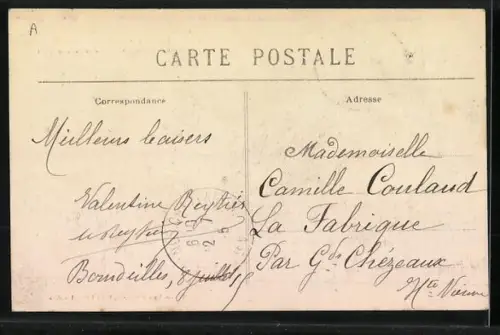 A
CARTE POSTALE
Correspondance
Adresse
Meilleurs baisers
Valentine
Bourdeilles, 8 juillet
Mademoiselle
Camille Coulaud
La Fabrique
Par Gds Chézeaux
Hte Vienne